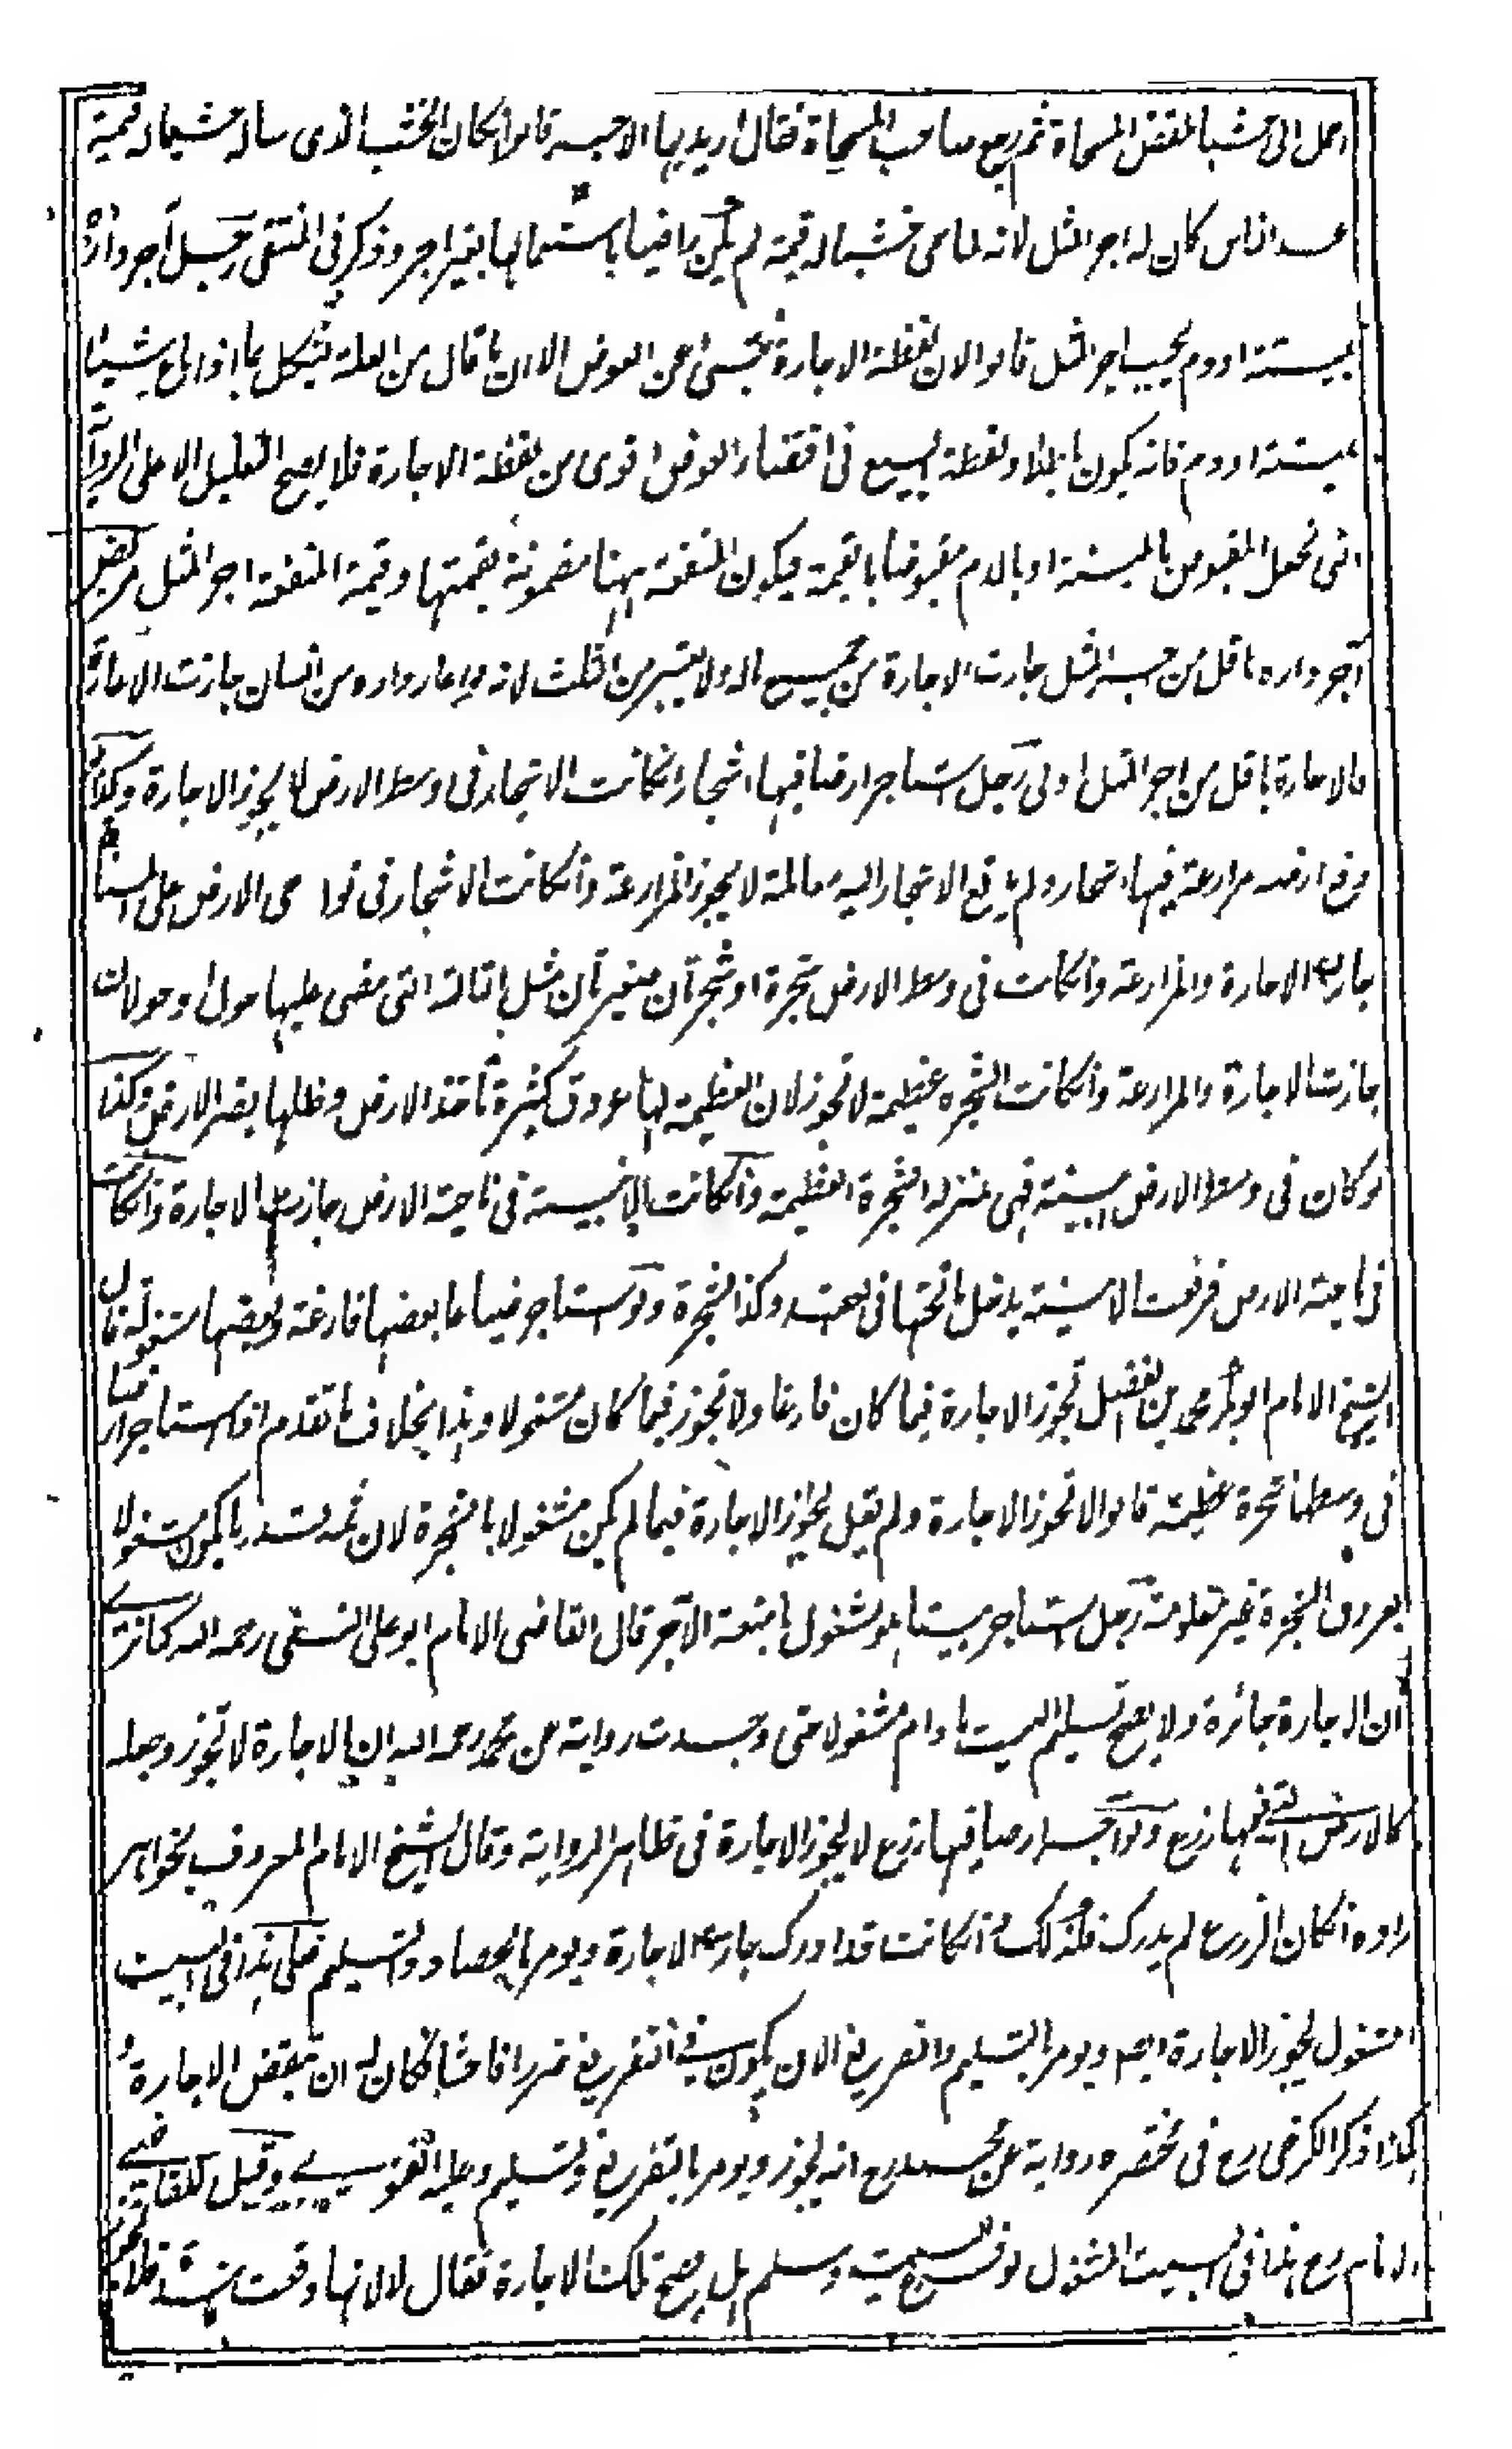 احمل الى خشبا لمقبض المسحاة ثم رجع صاحب المسحاة فقال اريد بها الاجر قالوا انكان الخشب الذى ساله شيئا له قيمة
عند الناس كان له اجر المثل لانه لما سمى خشبا له قيمة لم يكن راضيا باستعمالها بغير اجر وذكر فى المنتقى رجل آجر داره
بميتة او دم يجب اجر المثل قالوا لان لفظة الاجارة تنبئ عن العوض الا ان ما قال من العلة يشكل بما اذا باع شيئا
بميتة او دم فانه يكون باطلا ولفظة البيع فى اقتضاء العوض اقوى من لفظة الاجارة فلا يصح التعليل الا على الرواية
التى تجعل المقبوض بالميتة او بالدم مقبوضا بالقيمة فيكون المنفعة ههنا مضمونة بقيمتها وقيمة المنفعة اجر المثل مريض
آجر داره باقل من اجر المثل جازت الاجارة من جميع المال ولا يعتبر من الثلث لانه لو اعار داره من انسان جازت الاعارة
فالاجارة باقل من اجر المثل اولى رجل استاجر ارضا فيها اشجار انكانت الاشجار فى وسط الارض لا يجوز الاجارة وكذا لو
دفع ارضه مزارعة فيها اشجار ولم يدفع الاشجار اليه معاملة لا يجوز المزارعة وانكانت الاشجار فى نواحى الارض على المسناة
جازت الاجارة والمزارعة وانكانت فى وسط الارض شجرة او شجرتان صغيرتان مثل التالة التى مضى عليها حول او حولان
جازت الاجارة والمزارعة وانكانت الشجرة عظيمة لا تجوز لان العظيمة لها عروق كثيرة تاخذ الارض وظلها يضر الارض وكذا
لو كان فى وسط الارض ابنية فهى بمنزلة الشجرة العظيمة وانكانت الابنية فى ناحية الارض جازت الاجارة وانكانت
فى ناحية الارض فرفعت الابنية يدخل ما تحتها فى وكذا الشجرة ولو استاجر ضياعا بعضها فارغة وبعضها مشغولة قال
الشيخ الامام ابو بكر محمد بن الفضل تجوز الاجارة فيما كان فارغا ولا تجوز فيما كان مشغولا وهذا بخلاف ما تقدم اذا استاجر ارضا
فى وسطها شجرة عظيمة قالوا لا تجوز الاجارة ولم يقل تجوز الاجارة فيما لم يكن مشغولا بالشجرة لان ثمه قدر ما يكون مشغولا
بعروق الشجرة غير معلومة رجل استاجر بيتا هو مشغول بامتعة الآجر قال القاضى الامام ابو على النسفى رحمه الله كنا نرى
ان الاجارة جائزة ولا يصح تسليم البيت ما دام مشغولا حتى وجدت رواية عن محمد رحمه الله ان الاجارة لا تجوز وجعله
كالارض التى فيها زرع ولو آجر ارضا فيها زرع لا يجوز الاجارة فى ظاهر الرواية وقال الشيخ الامام المعروف بخواهر
زاده انكان الزرع لم يدرك فكذلك وانكانت قد ادرك جازت الاجارة ويومر بالحصاد والتسليم فعلى هذا فى البيت
المشغول يجوز الاجارة ايضا ويومر بالتسليم والتفريغ الا ان يكون فى التفريغ ضررا فاحشا فكان له ان ينقض الاجارة و
هكذا ذكر الكرخى رح فى مختصره رواية عن محمد رح انه يجوز ويومر بالتفريغ والتسليم وعليه الفتوى وقيل للقاضى
الامام رح هذا فى البيت المشغول لو فرغ البيت وسلم هل يصح تلك الاجارة فقال لا لانها وقعت فاسدة فلا